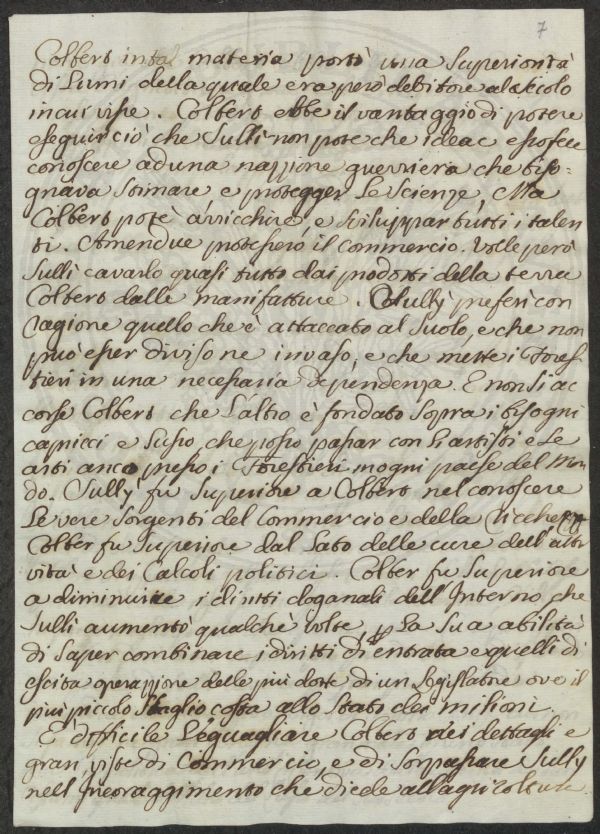 7
Colbert in tal materia portò una Superiorità
di Lumi della quale era però debitore al secolo
in cui visse. Colbert ebbe il vantaggio di potere
eseguir ciò che Sullì non pote che idear e so fece
conoscere ad una nazzione guerriera che biso=
gnava stimare e protegger Le Scienze, Ma
Colbert potè arricchire, e sviluppar tutti i talen
ti. Amendue protessero il commercio. Volle però
Sullì cavarlo quasi tutto dai prodotti della terra
Colbert dalle manifatture. Sully preferì con
ragione quello che è attaccato al Suolo, e che non
può esser diviso ne invaso, e che mette i Fores
tieri in una necessaria Dependenza. E non si ac
corse Colbert che l'altro è fondato Sopra i bisogni
capricci e Lusso, che posso passar con li artisti e Le
arti anco presso i Forestieri in ogni paese del Mon
do. Sully fu Superiore a Colbert nel conoscere
Le vere Sorgenti del Commercio e della Ricchezza
Colber fu Superiore dal Lato delle cure dell'atti
vità e dei Calcoli politici. Colber fu Superiore
a diminuire i diritti doganali dell'Interno che
Sullì aumentò qualche volta, p La Sua abilità
di Saper combinare i diritti di entrata e quelli di
escita operazzione delle più dotte di un Legislatore ove il
più piccolo Sbaglio costa allo Stato dei milioni.
E difficile L'eguagliare Colbert nei dettagli e
gran viste di Commercio, e di Sorpassare Sully
nell'Incoraggimento che diede all'agricoltura.